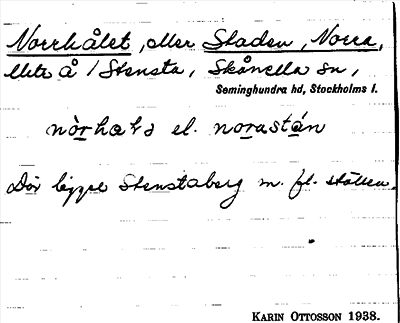 Norrhålet, eller Staden, Norra,
lite å i Stensta, Skånella sn,
Seminghundra hd, Stockholms l.
nòrhɑlə el. norastán
Där ligger Stenstaberg m. fl. ställen.
KARIN OTTOSSON 1938.